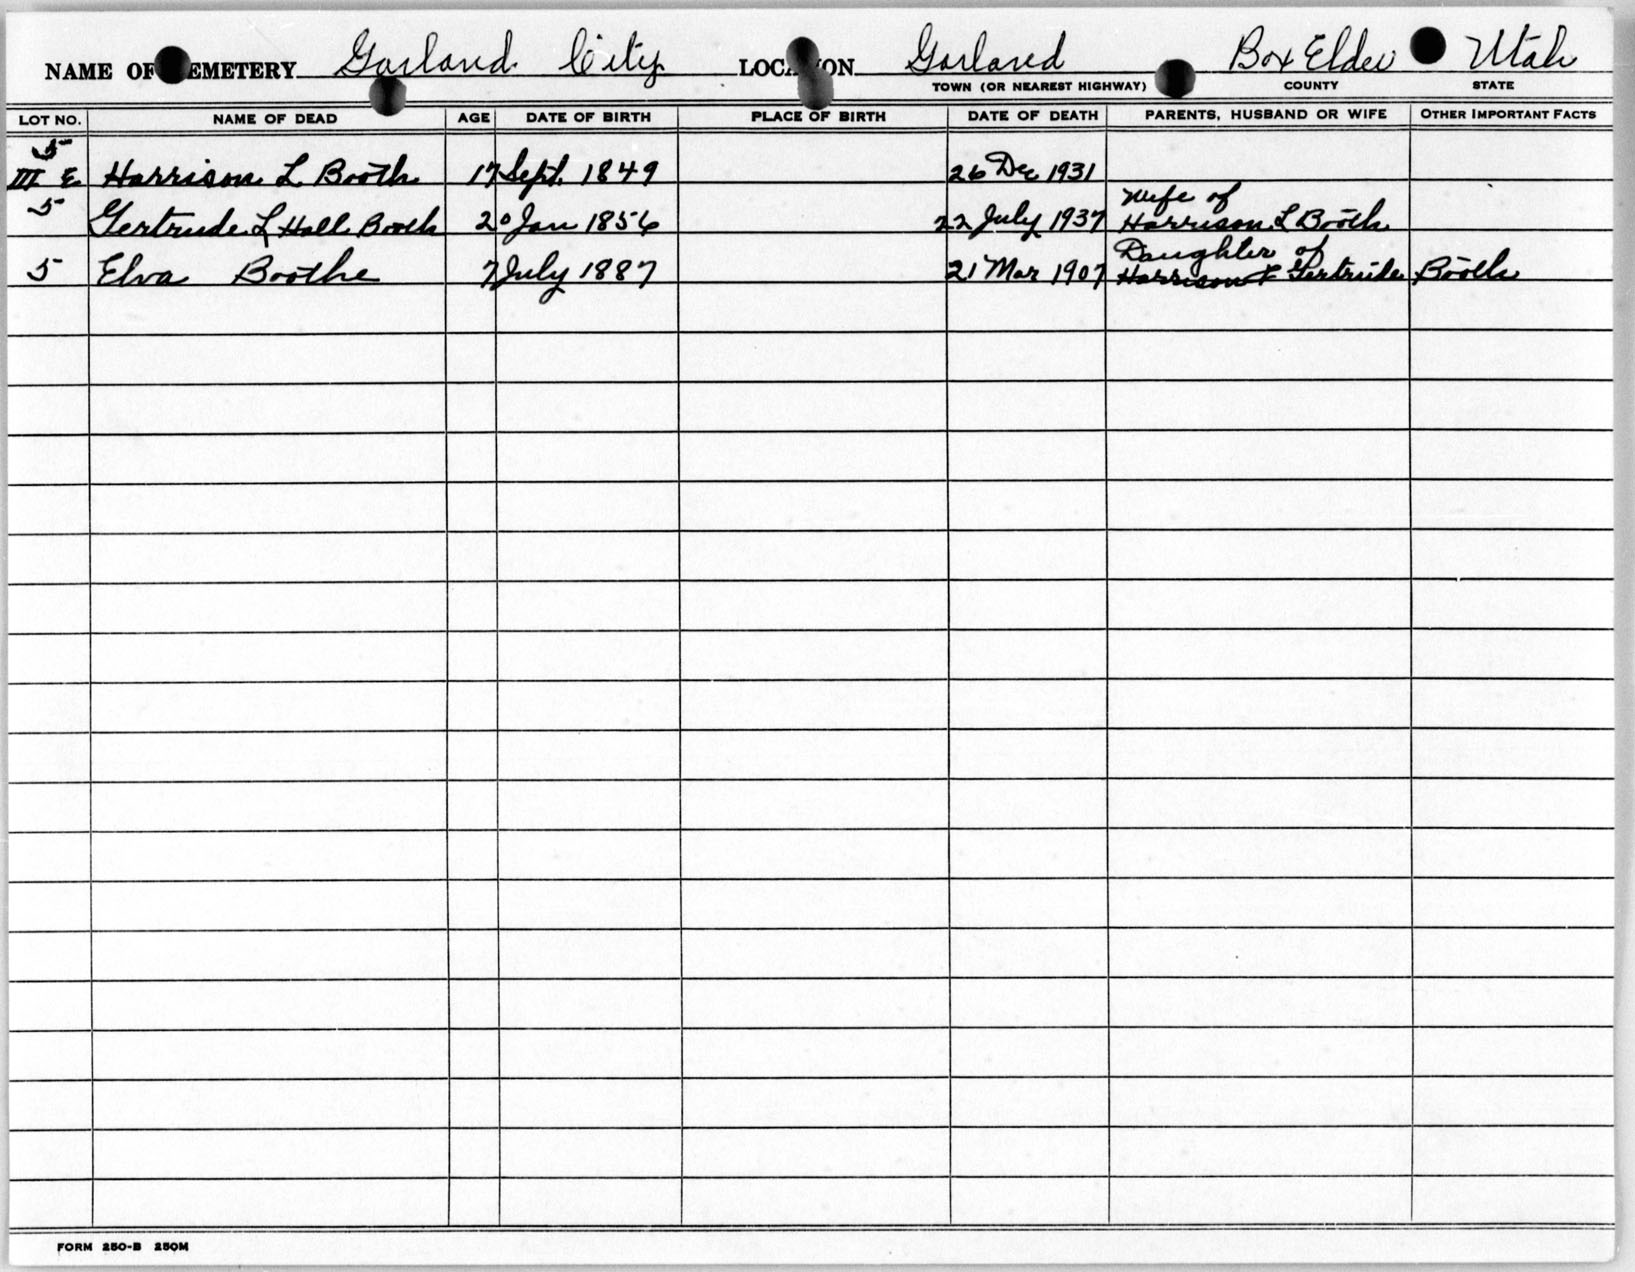 NAME OF CEMETERY Garland City LOCATION Garland Box Elder Utah
TOWN (OR NEAREST HIGHWAY) COUNTY STATE
LOT NO. NAME OF DEAD AGE DATE OF BIRTH PLACE OF BIRTH DATE OF DEATH PARENTS, HUSBAND OR WIFE OTHER IMPORTANT FACTS
5
III E Harrison L Booth 17 Sept. 1849 26 Dec 1931
Wife of
5 Gertrude L Hall Booth 20 Jan 1856 22 July 1937 Harrison L Booth
Daughter of
5 Elva Boothe 7 July 1887 21 Mar 1907 Harrison & Gertrude Booth
FORM 250-B 250M